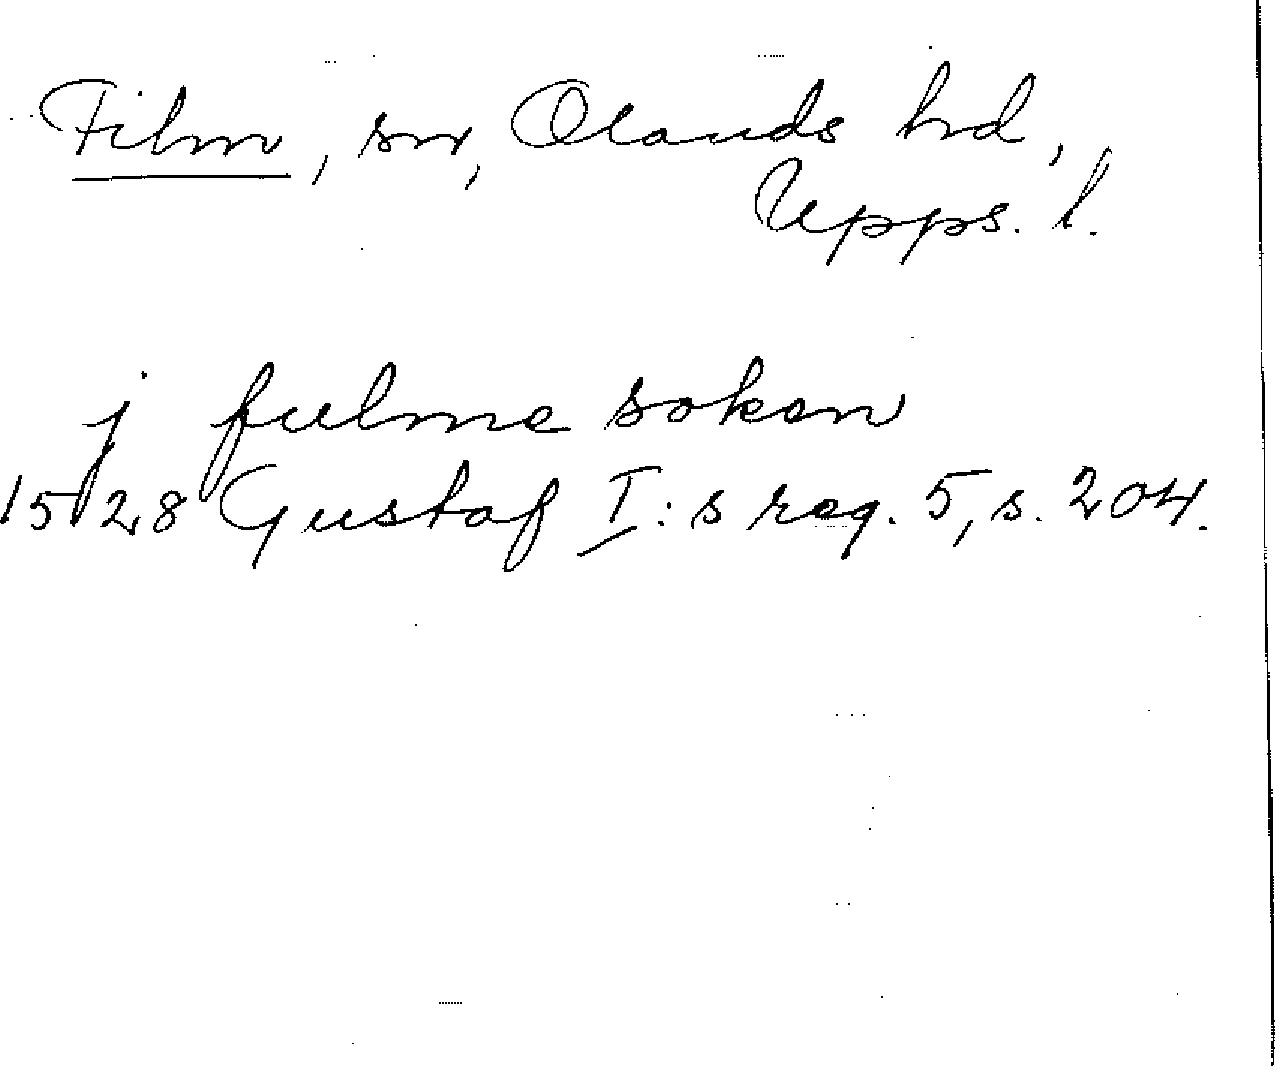 Film, sn, Olands hd,
Upps. l.
j fulme soken
1528 Gustaf I:s reg. 5, s. 204.